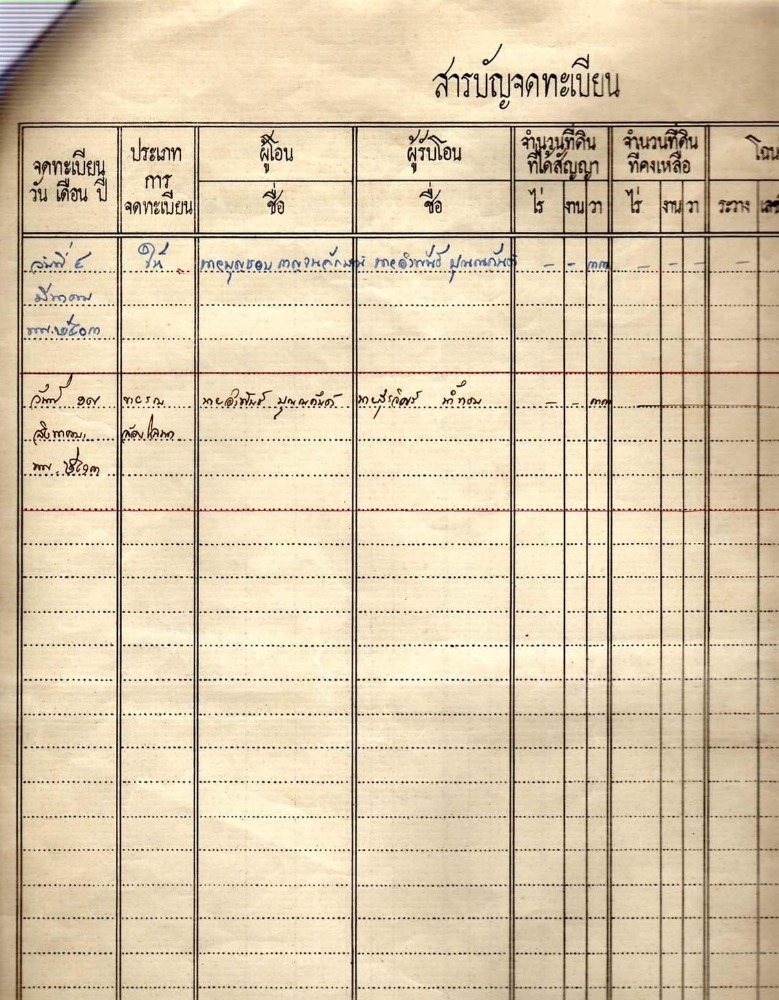 สารบัญจดทะเบียน
จดทะเบียน
วัน เดือน ปี
ประเภท
การ
จดทะเบียน
ผู้โอน
ชื่อ
ผู้รับโอน
ชื่อ
จำนวนที่ดิน
ที่ได้สัญญา
ไร่ งาน วา
จำนวนที่ดิน
ที่คงเหลือ
ไร่ งาน วา
โฉน
ระวาง เลข
วันที่ ๕ ให้ นายบุญชอบ นายอัมพันธ์ - - ๓๓ - - - -
มีนาคม
พ.ศ. ๒๕๐๓
วันที่ ๑๗ นายอัมพันธ์ - - ๓๓
สิงหาคม
พ.ศ. ๒๕๑๓